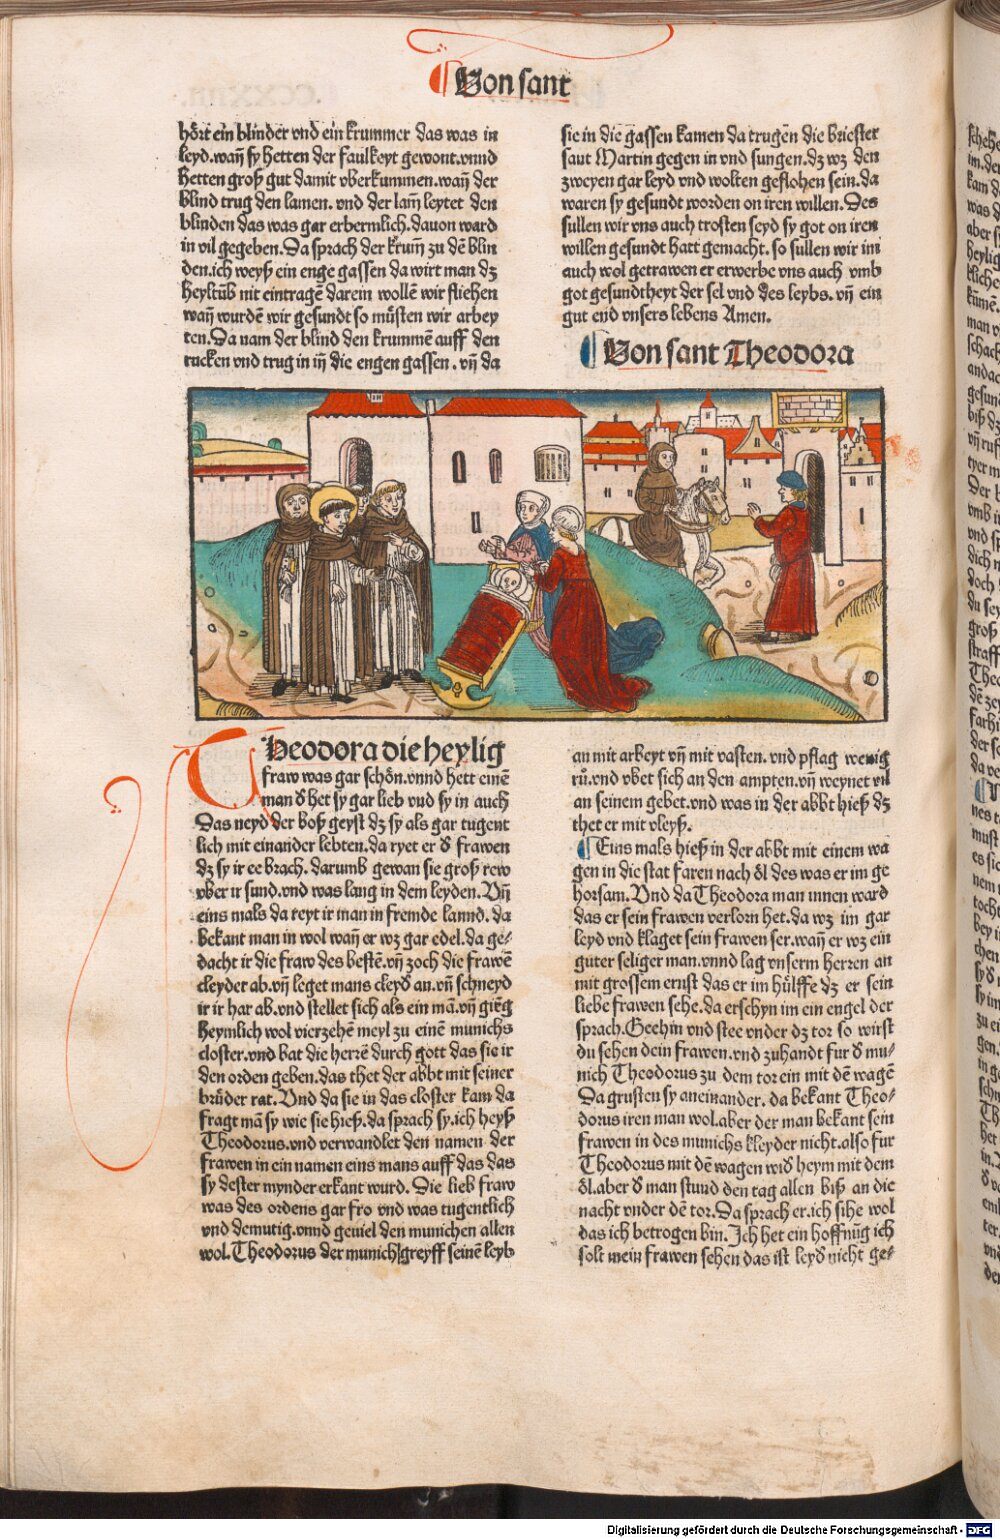 Von sant
hört ein blinder vnd ein krummer das was in
leyd.wañ sy hetten der faulkeyt gewont.vnnd
hetten groß gut damit vberkummen.wañ der
blind trug den lamen. vnd der lam̃ leytet den
blinden das was gar erbermlich.dauon ward
in vil gegeben.Da sprach der krum̃ zu dē blin
den.ich weyß ein enge gassen da wirt man dz
heyltūb nit eintragē darein wollē wir fliehen
wañ wurdē wir gesundt so můsten wir arbey
ten.Da nam der blind den krummē auff den
rucken vnd trug in iñ die engen gassen. vñ da
sie in die gassen kamen da trugen die briester
sant Martin gegen in vnd sungen.dz wz den
zweyen gar leyd vnd wolten geflohen sein.da
waren sy gesundt worden on iren willen.Des
sullen wir vns auch trosten seyd sy got on iren
willen gesundt hatt gemacht. so sullen wir im
auch wol getrawen er erwerbe vns auch vmb
got gesundtheyt der sel vnd des leybs. vñ ein
gut end vnsers lebens Amen.
Von sant Theodora
Theodora die heylig
fraw was gar schőn.vnnd hett einē
man d̕ het sy gar lieb vnd sy in auch
Das neyd der boß geyst dz sy als gar tugent
lich mit einander lebten.da ryet er d̕ frawen
dz sy ir ee brach. darumb gewan sie groß rew
vber ir sund.vnd was lang in dem leyden. Vñ
eins mals da reyt ir man in fremde lannd. da
bekant man in wol wañ er wz gar edel.da ge⸗
dacht ir die fraw des bestē.vñ zoch die frawē
cleyder ab.vñ leget mans cleyd̕ an.vñ schneyd
ir ir har ab.vnd stellet sich als ein mā.vñ giēg
heymlich wol vierzehē meyl zu einē munichs
closter.vnd bat die herrē durch gott das sie ir
den orden geben.das thet der abbt mit seiner
brůder rat. Vnd da sie in das closter kam da
fragt mā sy wie sie hieß.da sprach sy.ich heyß
Theodorus.vnd verwandlet den namen der
frawen in ein namen eins mans auff das das
sy dester mynder erkant wurd. Die lieb fraw
was des ordens gar fro vnd was tugentlich
vnd demutig.vnnd geuiel den munichen allen
wol.Theodorus der munich greyff seinē leyb
an mit arbeyt vñ mit vasten. vnd pflag wenig
rů.vnd vbet sich an den ampten.vñ weynet vil
an seinem gebet.vnd was in der abbt hieß dz
thet er mit vleyß.
Eins mals hieß in der abbt mit einem wa
gen in die stat faren nach öl des was er im ge
horsam. Vnd da Theodora man innen ward
das er sein frawen verlorn het.da wz im gar
leyd vnd klaget sein frawen ser.wañ er wz ein
guter seliger man.vnnd lag vnserm herren an
mit grossem ernst das er im hůlffe dz er sein
liebe frawen sehe.da erschyn im ein engel der
sprach.Gee hin vnd stee vnder dz tor so wirst
du sehen dein frawen.vnd zuhandt fur d̕ mu⸗
nich Theodorus zu dem tor ein mit dē wagē
Da grusten sy aneinander. da bekant Theo⸗
dorus iren man wol.aber der man bekant sein
frawen in des munichs kleyder nicht.also fur
Theodorus mit dē wagen wid̕ heym mit dem
öl.aber d̕ man stund den tag allen biß an die
nacht vnder dē tor.Da sprach er.ich sihe wol
das ich betrogen bin. Ich het ein hoffnūg ich
solt mein frawen sehen das ist leyd̕ nicht ge⸗
Digitalisierung gefördert durch die Deutsche Forschungsgemeinschaft - DFG